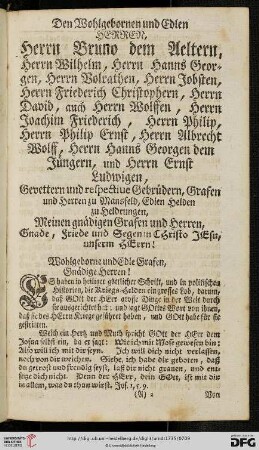 Den Wohlgebornen und Edlen
HERREN,
Herrn Bruno dem Aeltern,
Herrn Wilhelm, Herrn Hanns Geor-
gen, Herrn Volrathen, Herrn Jobsten,
Herrn Friederich Christophern, Herrn
David, auch Herrn Wolffen, Herrn
Joachim Friederich, Herrn Philip,
Herrn Philip Ernst, Herrn Albrecht
Wolff, Herrn Hanns Georgen dem
Jüngern, und Herrn Ernst
Ludwigen,
Gevettern und respective Gebrüdern, Grafen
und Herren zu Mansfeld, Edlen Helden
zu Heldrungen,
Meinen gnädigen Grafen und Herren,
Gnade, Friede und Segen in Christo JEsu,
unserm HErrn!
Wohlgeborne und Edle Grafen,
Gnädige Herren!
ES haben in heiliger göttlicher Schrift, und in politischen
Historien, die Kriegs-Helden ein grosses Lob, darum,
daß GOtt der HErr grosse Dinge in der Welt durch
sie ausgerichtet hat, und legt GOttes Wort von ihnen,
daß sie des HErrn Kriege geführet haben, und GOtt habe für sie
gestritten.
Welch ein Hertz und Muth spricht GOtt der HErr dem
Josua selbst ein, da er sagt: Wie ich mit Mose gewesen bin:
Also will ich mit dir seyn. Ich will dich nicht verlassen,
noch von dir weichen. Siehe, ich habe dir geboten, daß
du getrost und freudig seyst, laß dir nicht grauen, und ent-
setze dich nicht. Denn der HErr, dein GOtt, ist mit dir
in allem, was du thun wirst. Jos. 1, 5. 9.
(A) 2
Von
http://digi.ub.uni-heidelberg.de/diglit/
UNIVERSITÄTS-
BIBLIOTHEK
HEIDELBERG
Gefördert durch die
DFG